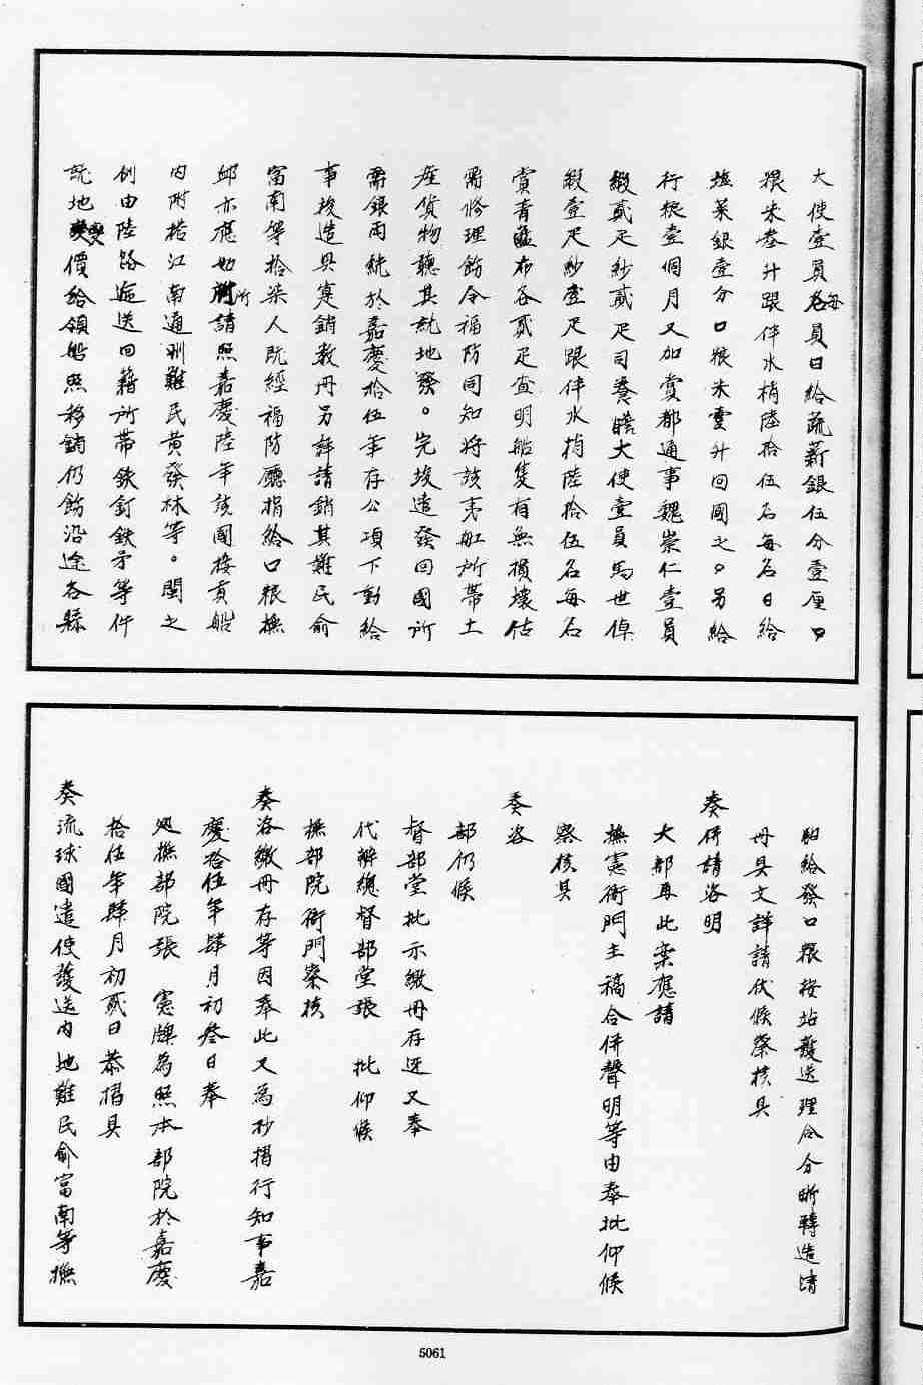 大使壹員每員日給蔬薪銀伍分壹厘口
糧米叁升跟伴水梢陸拾伍名每名日給
塩菜銀壹分口糧米壹升回國之日另給
行糧壹個月又加賞都通事魏崇仁壹員
緞貳疋紗貳疋司養贍大使壹員馬世偉
緞壹疋紗壹疋跟伴水梢陸拾伍名每名
賞青藍布各貳疋查明船隻有無損壞估
需修理飭令福防同知將該夷船所帶土
產貨物聽其就地發。完竣造發回國所
需銀兩統於嘉慶拾伍年存公項下動給
事竣造具寔銷教冊另詳請銷其難民俞
富南等拾柒人既經福防廳捐給口糧撫
卹亦應如所請照嘉慶陸年該國接貢船
內附搭江南通州難民黃發林等。閩之
例由陸路遞送回籍所帶鉄釘鉄矛等件
就地變價給領船照移銷仍飭沿途各縣
給發口糧按站護送理合分晰轉造清
冊具文詳請伏候察核具
奏併請洛明
大部再此案應請
撫憲衙門主稿合併聲明等由奉批仰候
察核具
奏洛
部仍候
督部堂批示繳冊存送又奉
代辦總督部堂張 批仰候
撫部院衙門察核
奏洛繳冊存等因奉此又為抄摺行知事嘉
慶拾伍年肆月初叁日奉
廵撫部院張 憲牌為照本部院於嘉慶
拾伍年肆月初貳日恭摺具
奏流球國遣使護送內地難民俞富南等撫
5061